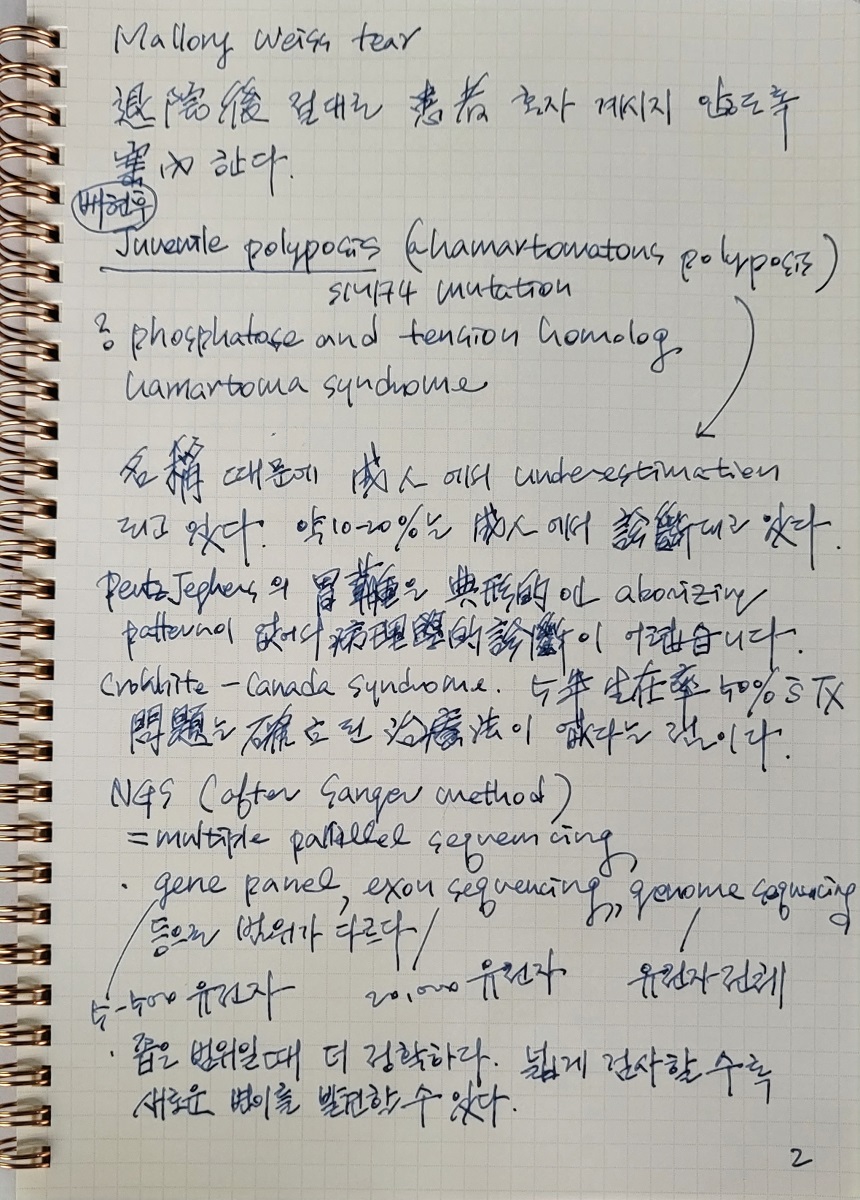 Mallory Weiss tear
退院後 절대로 患者 혼자 계시지 않도록
案內 한다.
배현후
Juvenile polyposis (hamartomatous polyposis)
SMAD4 mutation
phosphatase and tension homolog
hamartoma syndrome
名稱 때문에 成人 에서 underestimation
되고 있다. 약 10-20%는 成人 에서 診斷되고 있다.
Peutz Jeghers의 胃 은 典形的 인 aborizing
pattern이 없어서 病理學的 診斷이 어렵습니다.
Cronkhite-Canada syndrome. 5年 生存率 50% s Tx
問題는 確立된 治療法이 없다는 점이다.
NGS (after Sanger method)
= multiple parallel sequencing
· gene panel, exon sequencing, genome sequencing
등으로 범위가 다르다
5-500 유전자 20,000 유전자 유전자전체
· 좁은 범위일때 더 정확하다. 넓게 검사할 수록
새로운 변이를 발견할 수 있다.
2